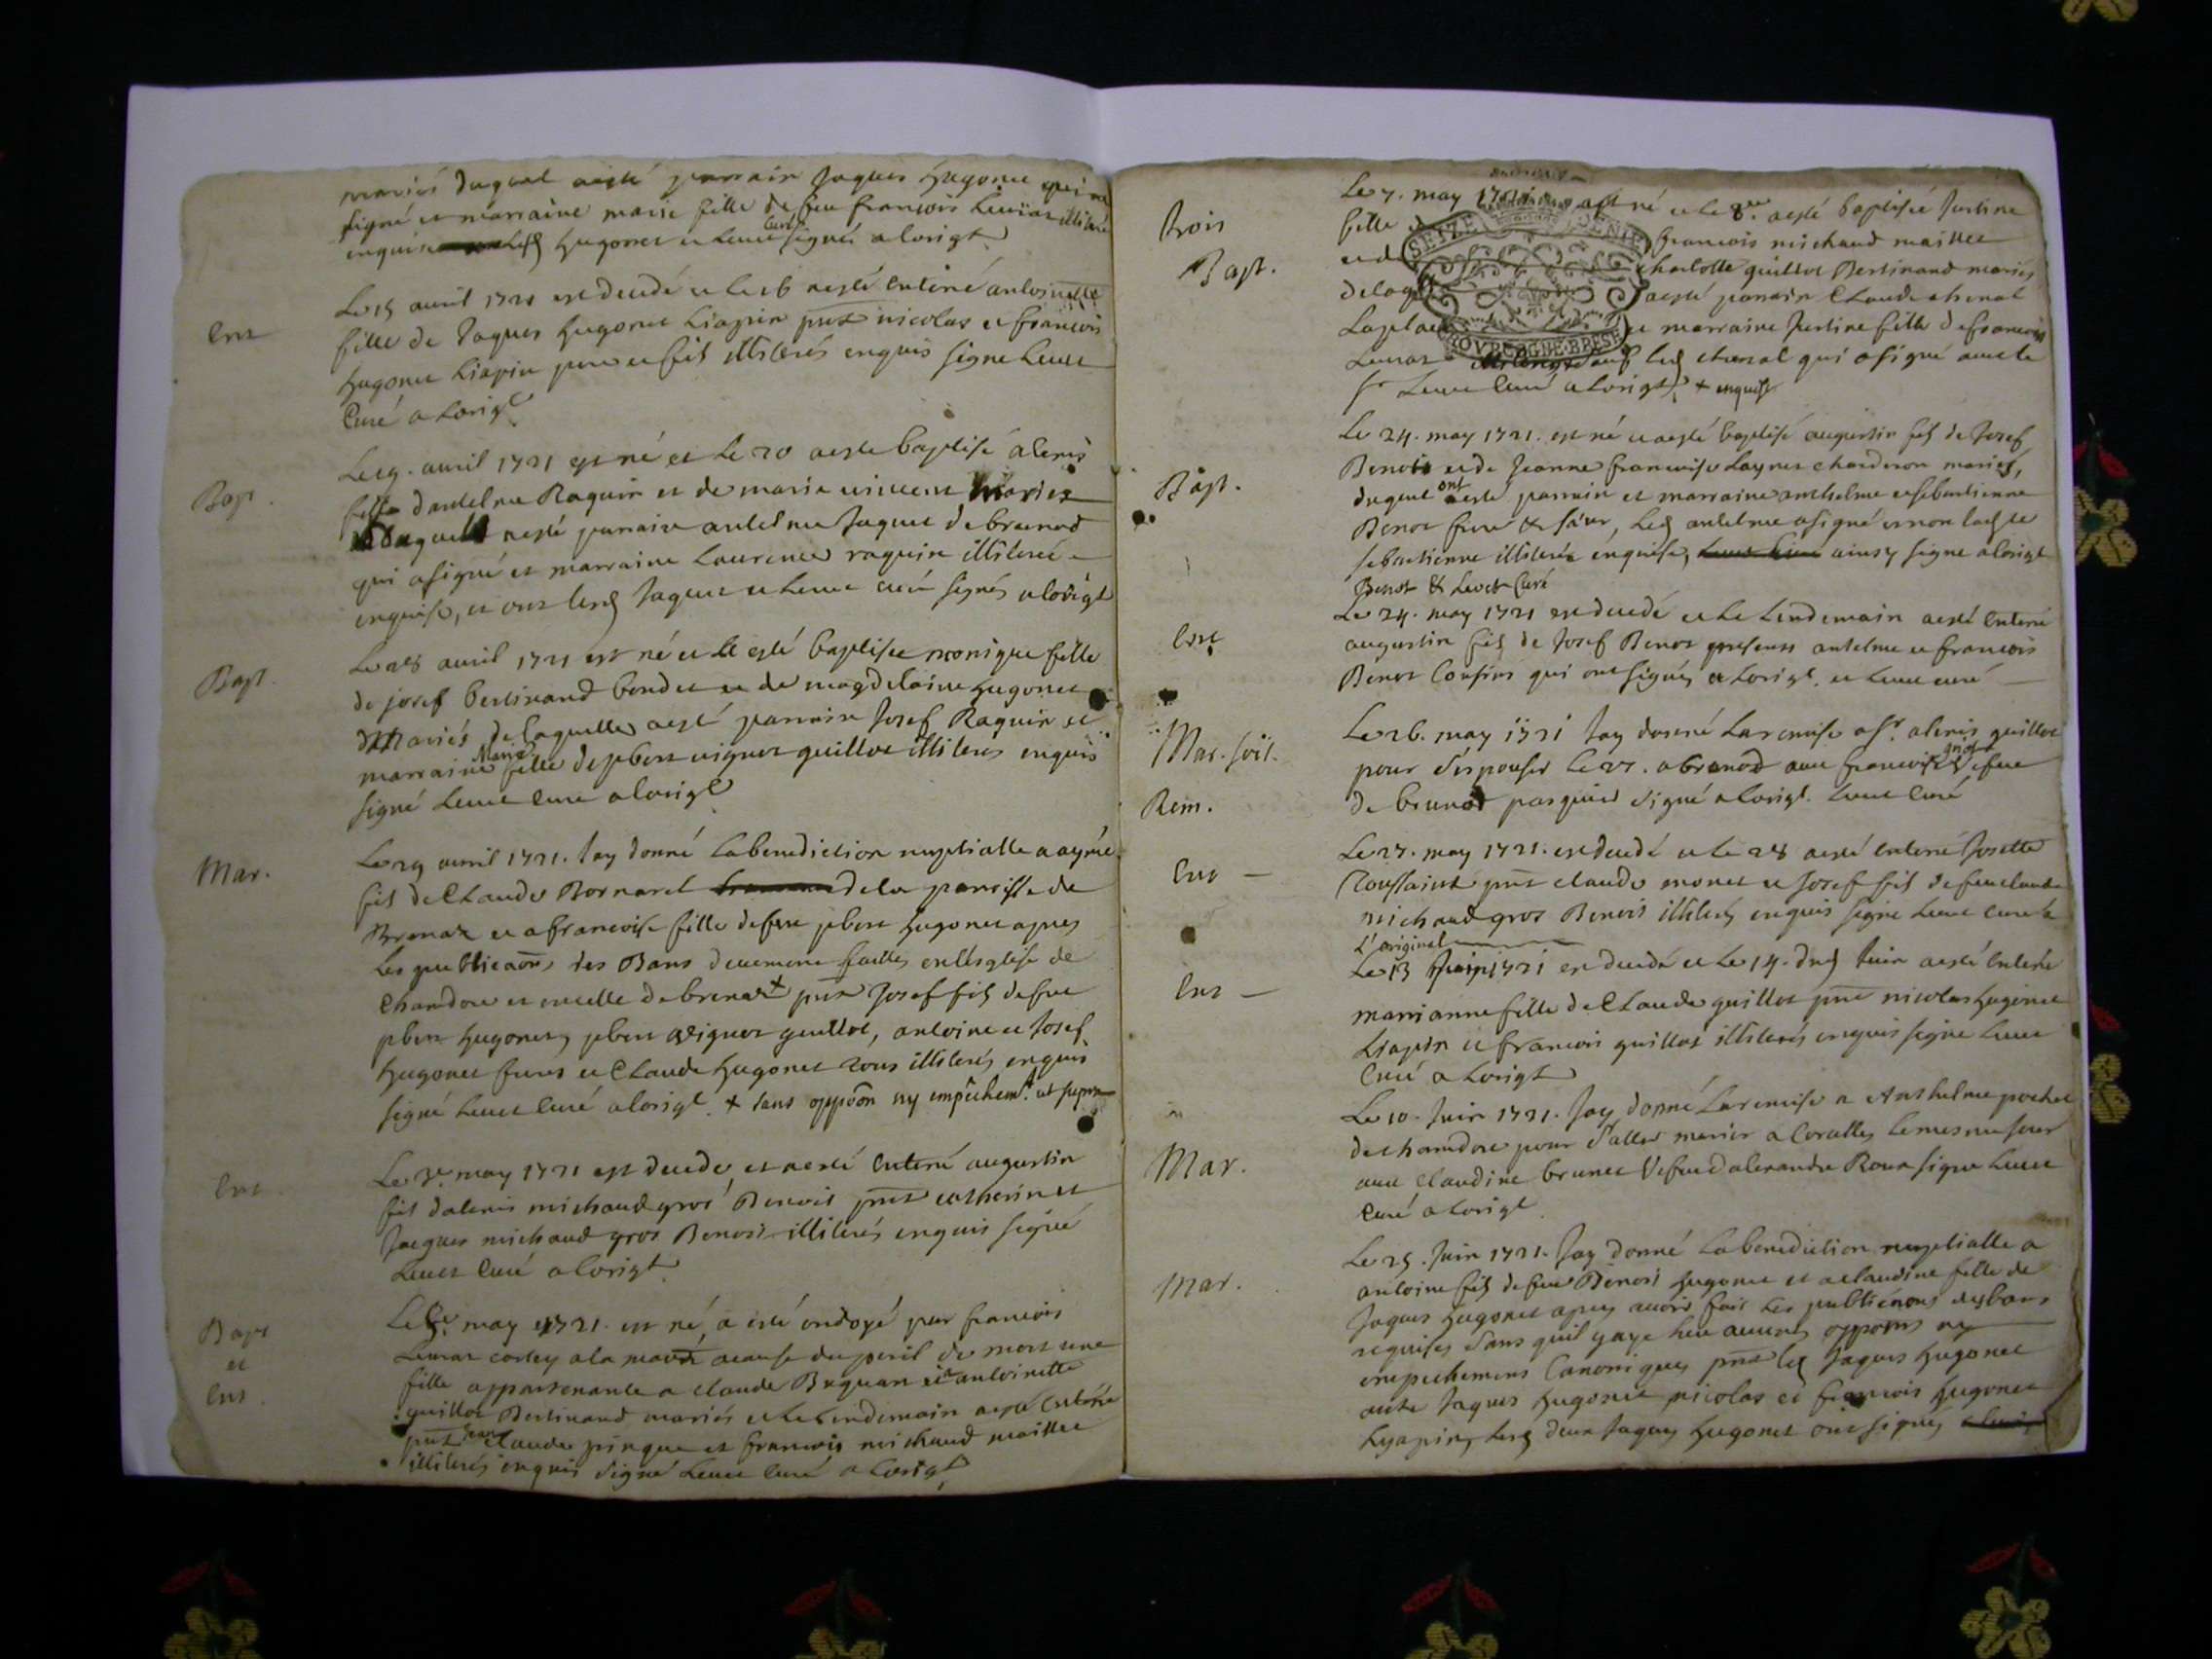 mariés duquel aesté parrain Jaques hugonet qui a
signé et marraine marie fille de feu francois Leuras illiteré
enquise led hugonet et Leuet Curé signés a lorigl
Ent
Le 15 auril 1721 est decedé et le 16 aesté enteré antoinette
fille de Jaques hugonet Liapin pnt nicolas et francois
hugonet Liapin pere et fils illiterés enquis signé Leuet
Curé a Lorigl
Bap.
Le 19. auril 1721 est né et le 20 aeste baptisé alexis
fils dantelme Raquin et de marie uincent mariés
duquel aesté parrain antelme Jaquet de brenod
qui asigné et marraine Laurence raquin illiterée
enquise, et ont lesd Jaquet et Leuet curé signés a lorigl
Bapt.
Le 28 auril 1721 est né et esté baptisee monique fille
de josef bertinand bondet et de magdelaine hugonet
mariés de laquelle aesté parrain Josef Raquin et
marraine Marie fille de pbert uignet guillot illiterés enquis
signé Leuet Curé a lorigl
Mar.
Le 29 auril 1721. Jay donné La benediction nuptialle a aymé
fils de Claude Bornarel de la paroisse de
Brenaz et a francoise fille de feu pbert hugonet apres
Les publicaons des Bans deuement faittes en lésglise de
Chandore et en celle de brenaz + pnt Josef fils de feu
pbert hugonet, pbert uignet guillot, antoine et Josef
hugonet freres et Claude hugonet tous illiterés enquis
signé Leuet Curé a lorigl. + sans oppoôn ny empêchemt. ut supra
Ent
Le 3e. may 1721 est decedé, et aesté enteré augustin
fils dalexis michaud gros Benoit pnt catherin et
Jacques michaud gros Benoit illiterés enquis signé
Leuet Curé a lorigl
Bapt
et
Ent
Le 5e. may 1721. est né, a esté ondoyé par francois
Leuras a la maison acause du peril de mort une
fille appartenante a claude Buquan et a antoinette
guillot Bertinand mariés et le lendemain aesté enterée
pnt Jean claude pingue et francois michaud maillet
illiterés enquis signé Leuet Curé a Lorigl
trois
Bapt.
Le 7. may 1721 est né et le 8e. aesté baptisée Justine
fille francois michaud maillet
et d charlotte guillot Bertinand mariés
delaq aesté parrain Claude chenal
Laplac et marraine Justine fille de francois
Leuras sauf led chenal qui asigné auec le
sr Leuet Curé a Lorigl, + enquise
SEIZE
BOVRGOGNE·BRESSE
Bapt.
Le 24. may 1721. est né et aesté baptisé augustin fils de Josef
Benoit et de Jeanne francoise Laynet charderon mariés,
duquel ont esté parrain et marraine anthelme et sebastienne
Benot frere & sœur, led antelme asigné et non lad te
sebastienne illiterée enquise, ainsy signe a lorigl
Benot & Leuet Curé
Ent
Le 24. may 1721 est decedé et le lendemain aesté enteré
augustin fils de Josef Benot presents antelme et francois
Benot Cousins qui ont signés a Lorigl. et Leuet curé
Mar. soit.
Rem.
Le 26. may 1721 Jay donné La remise a sr. alexis guillot
pour sespouser le 27. a brenod auec francoise
de brenod pasquier signé a lorigl. Leuet Curé
Ent
Le 27. may 1721. est decedé et le 28 aesté enteré Josette
Toussaint pnt claude monet et Josef fils de feu claude
michaud gros Benoit illiterés enquis signe Leuet curé a
L'original
Ent
Le 13 Juin 1721 est decedé et le 14. dud Juin aesté enterée
marianne fille de Claude guillot pnt nicolas hugonet
Liapin et francois guillot illiterés enquis signe Leuet
Curé a Lorigl
Mar.
Le 10. Juin 1721. Jay donné La remise a Anthelme pochet
de chamdore pour s'aller marier a Coralles le mesme jour
auec claudine brunet Vefue dalexandre Roux signe Leuet
Curé a Lorigl
Mar.
Le 25. Juin 1721. Jay donné La benediction nuptialle a
antoine fils de feu Benoit hugonet et a claudine fille de
Jaques hugonet apres auoir fait les publicaons des bans
requises sans quil y aye heu aucunes oppoons ny
empechemens Canoniques pnt led Jaques hugonet
autre Jaques hugonet nicolas et francois hugonet
Lyapin, lesd deux Jaques hugonet ont signés